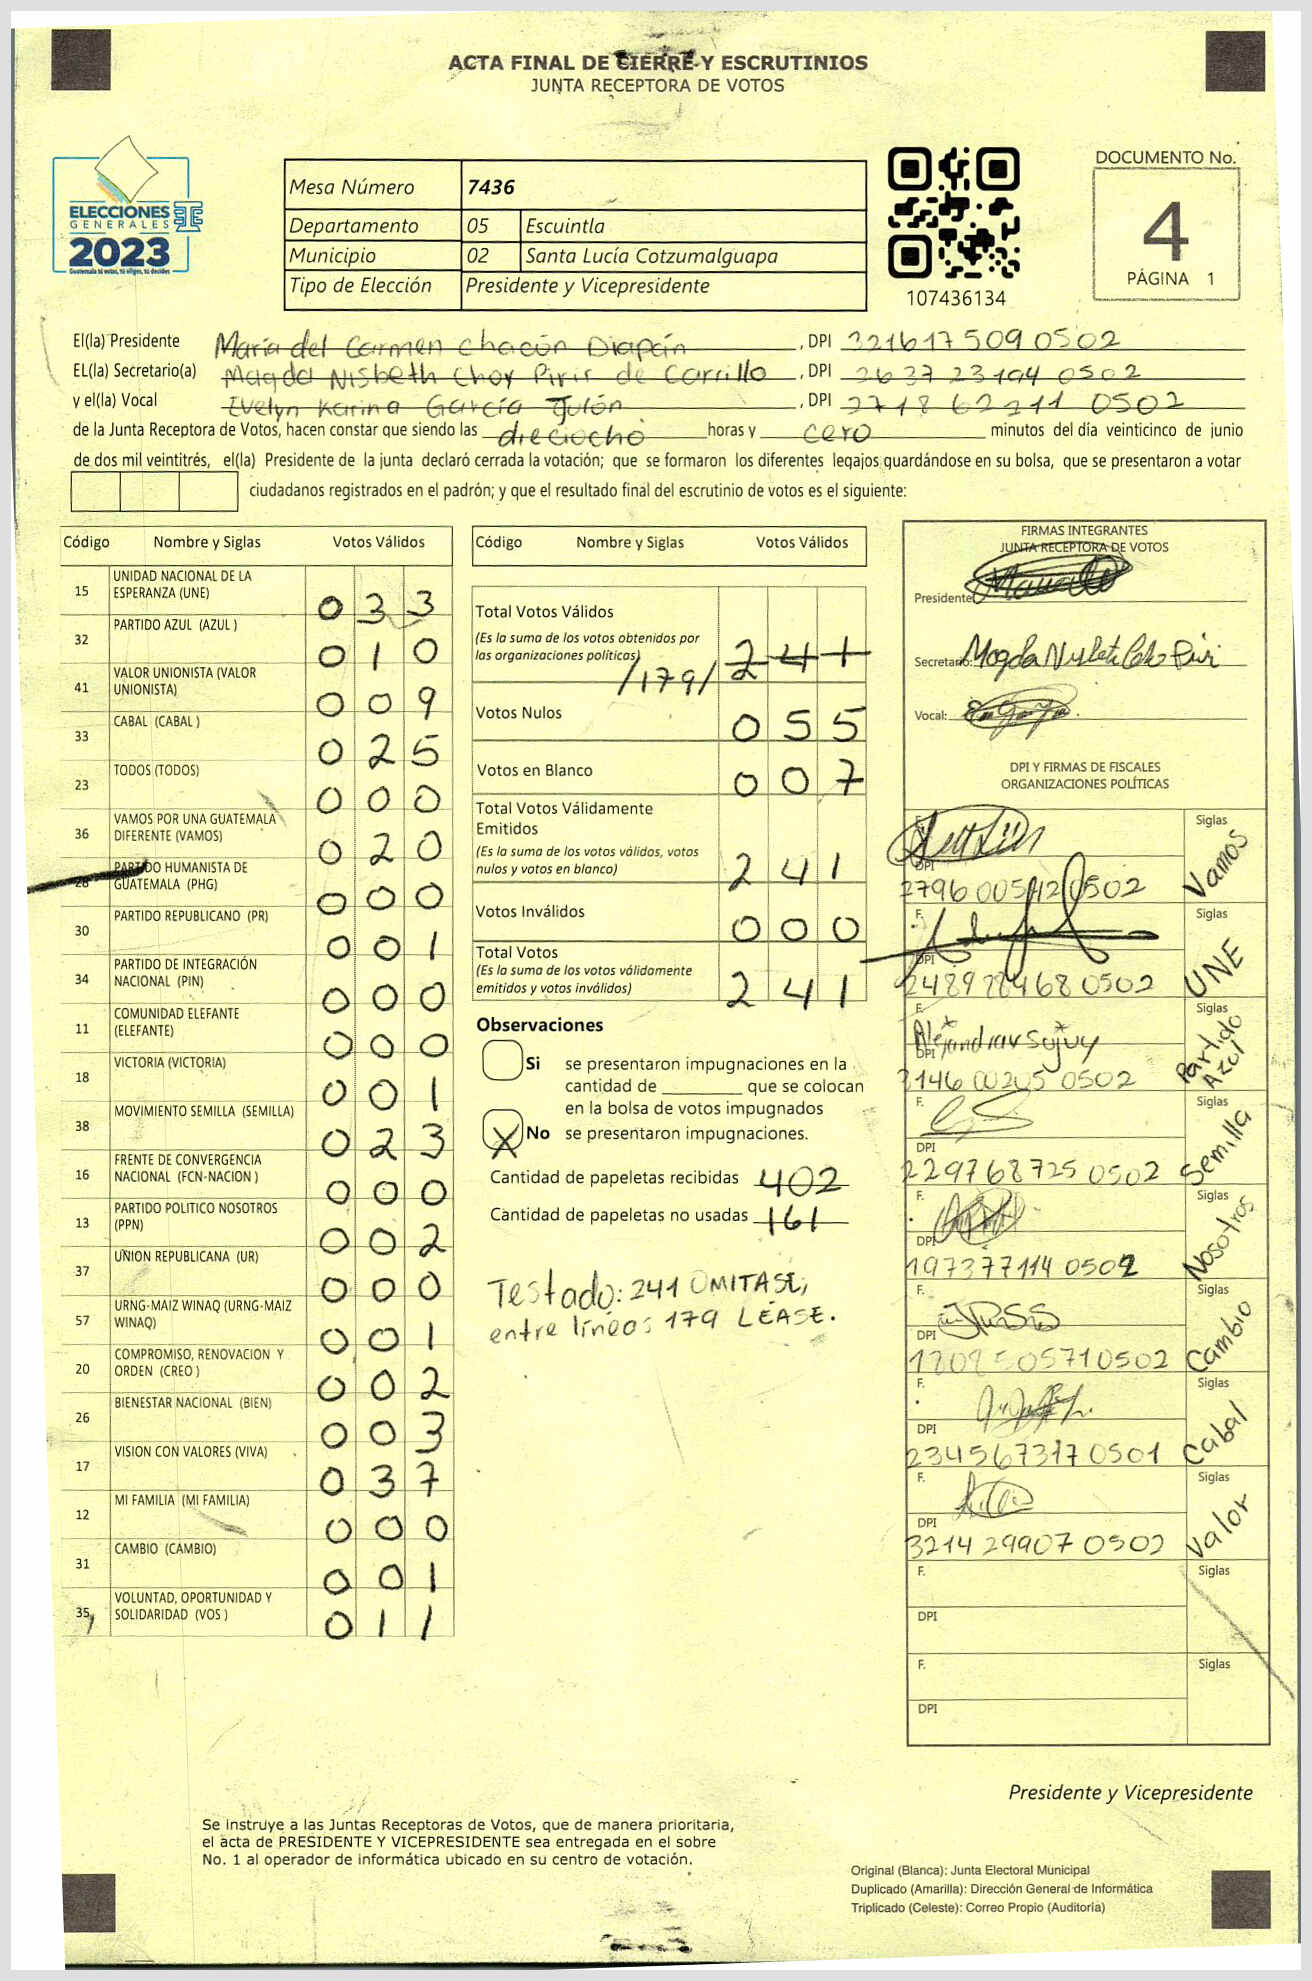 ACTA FINAL DE CIERRE Y ESCRUTINIOS
JUNTA RECEPTORA DE VOTOS
ELECCIONES
GENERALES
2023
Guatemala tú votas, tú eliges, tú decides
Mesa Número 7436
Departamento 05 Escuintla
Municipio 02 Santa Lucía Cotzumalguapa
Tipo de Elección Presidente y Vicepresidente
107436134
DOCUMENTO No.
4
PÁGINA 1
El(la) Presidente María del Carmen Chacón Diapán, DPI 321617509 0502
EL(la) Secretario(a) Magda Nisbeth Choy Pirir de Carrillo, DPI 2637 23194 0502
y el(la) Vocal Evelyn Karina García Tulón, DPI 2718 62211 0502
de la Junta Receptora de Votos, hacen constar que siendo las dieciocho horas y cero minutos del día veinticinco de junio
de dos mil veintitrés, el(la) Presidente de la junta declaró cerrada la votación; que se formaron los diferentes legajos guardándose en su bolsa, que se presentaron a votar
ciudadanos registrados en el padrón; y que el resultado final del escrutinio de votos es el siguiente:
Código Nombre y Siglas Votos Válidos
15 UNIDAD NACIONAL DE LA ESPERANZA (UNE) 033
32 PARTIDO AZUL (AZUL ) 010
41 VALOR UNIONISTA (VALOR UNIONISTA) 009
33 CABAL (CABAL ) 025
23 TODOS (TODOS) 000
36 VAMOS POR UNA GUATEMALA DIFERENTE (VAMOS) 020
28 PARTIDO HUMANISTA DE GUATEMALA (PHG) 000
30 PARTIDO REPUBLICANO (PR) 001
34 PARTIDO DE INTEGRACIÓN NACIONAL (PIN) 000
11 COMUNIDAD ELEFANTE (ELEFANTE) 000
18 VICTORIA (VICTORIA) 001
38 MOVIMIENTO SEMILLA (SEMILLA) 023
16 FRENTE DE CONVERGENCIA NACIONAL (FCN-NACION ) 000
13 PARTIDO POLITICO NOSOTROS (PPN) 002
37 UNION REPUBLICANA (UR) 000
57 URNG-MAIZ WINAQ (URNG-MAIZ WINAQ) 001
20 COMPROMISO, RENOVACION Y ORDEN (CREO ) 002
26 BIENESTAR NACIONAL (BIEN) 003
17 VISION CON VALORES (VIVA) 037
12 MI FAMILIA (MI FAMILIA) 000
31 CAMBIO (CAMBIO) 001
35 VOLUNTAD, OPORTUNIDAD Y SOLIDARIDAD (VOS ) 011
Código Nombre y Siglas Votos Válidos
Total Votos Válidos
(Es la suma de los votos obtenidos por
las organizaciones políticas) /179/ 241
Votos Nulos 055
Votos en Blanco 007
Total Votos Válidamente
Emitidos
(Es la suma de los votos válidos, votos
nulos y votos en blanco) 241
Votos Inválidos 000
Total Votos
(Es la suma de los votos válidamente
emitidos y votos inválidos) 241
Observaciones
Si se presentaron impugnaciones en la
cantidad de ________ que se colocan
en la bolsa de votos impugnados
X No se presentaron impugnaciones.
Cantidad de papeletas recibidas 402
Cantidad de papeletas no usadas 161
Testado: 241 OMITASE;
entre lineas 179 LEASE.
FIRMAS INTEGRANTES
JUNTA RECEPTORA DE VOTOS
Presidente
Secretario: Magda Nisbeth Choy Pirir
Vocal:
DPI Y FIRMAS DE FISCALES
ORGANIZACIONES POLÍTICAS
Siglas
DPI
Vamos
F. Siglas
DPI
UNE
F. Siglas
DPI
Partido Azul
F. Siglas
DPI
229768725 0502 Semilla
F. Siglas
DPI
197377114 0502 Nosotros
F. Siglas
DPI
Cambio
F. Siglas
DPI
234567317 0501 Cabal
F. Siglas
DPI
3214 29907 0502 Valor
F. Siglas
DPI
F. Siglas
DPI
Presidente y Vicepresidente
Se instruye a las Juntas Receptoras de Votos, que de manera prioritaria,
el acta de PRESIDENTE Y VICEPRESIDENTE sea entregada en el sobre
No. 1 al operador de informática ubicado en su centro de votación.
Original (Blanca): Junta Electoral Municipal
Duplicado (Amarilla): Dirección General de Informática
Triplicado (Celeste): Correo Propio (Auditoría)